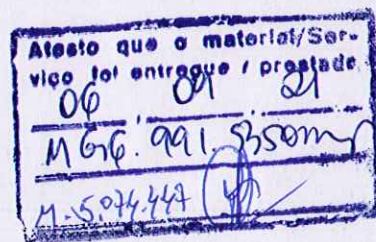 Atesto que o material/Ser-
viço foi entregue / prestado
06 09 21
M.5.074.447